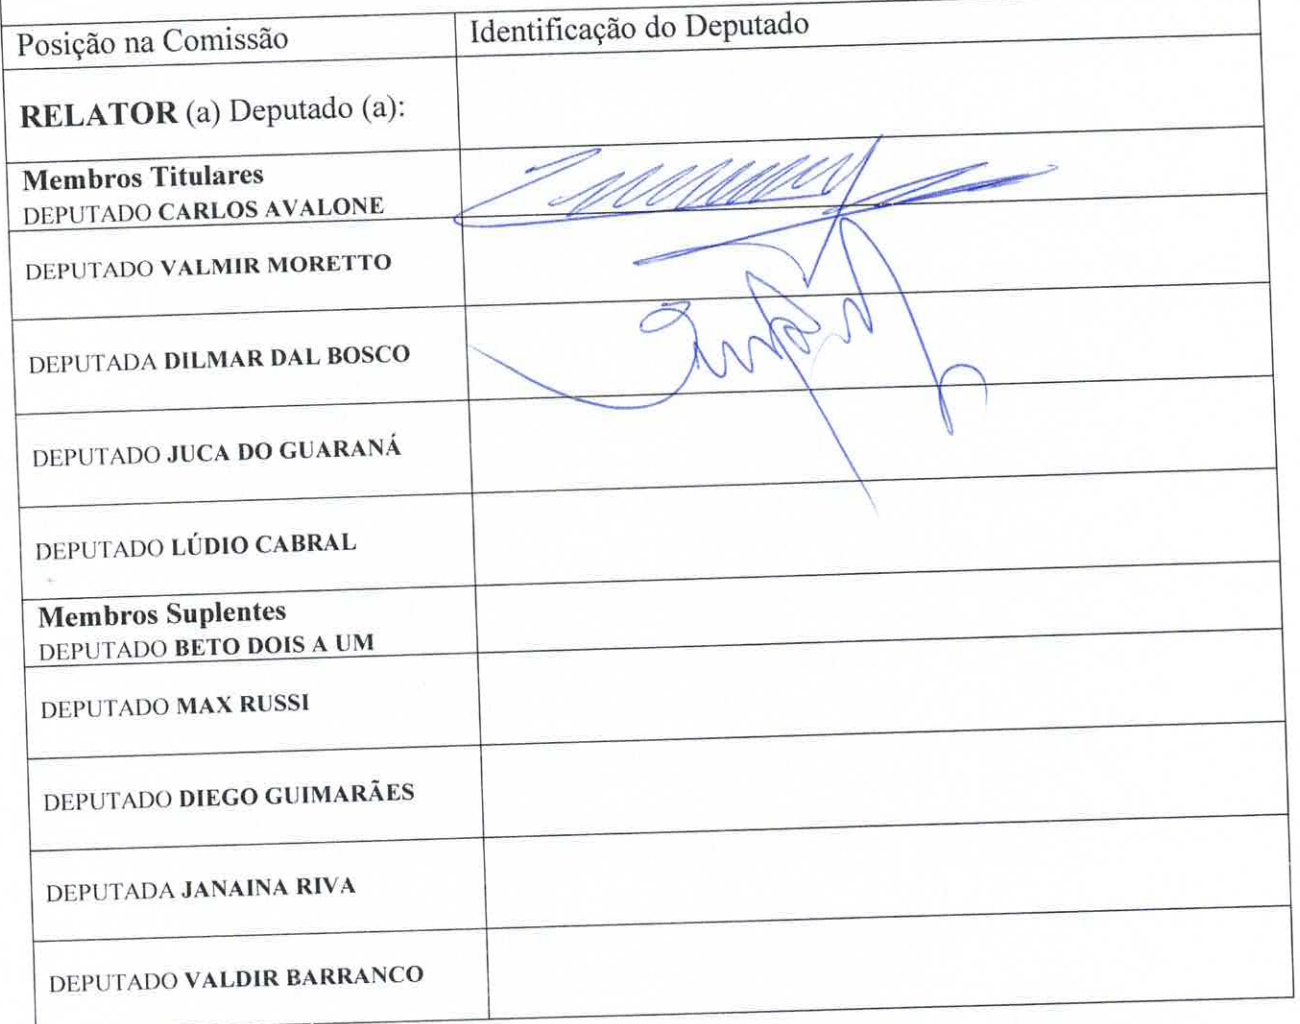 Posição na Comissão
Identificação do Deputado
RELATOR (a) Deputado (a):
Membros Titulares
DEPUTADO CARLOS AVALONE
DEPUTADO VALMIR MORETTO
DEPUTADA DILMAR DAL BOSCO
DEPUTADO JUCA DO GUARANÁ
DEPUTADO LÚDIO CABRAL
Membros Suplentes
DEPUTADO BETO DOIS A UM
DEPUTADO MAX RUSSI
DEPUTADO DIEGO GUIMARÃES
DEPUTADA JANAINA RIVA
DEPUTADO VALDIR BARRANCO